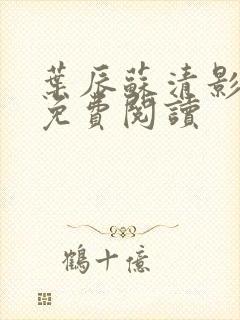 葉辰蘇清影
免費閱讀
鶴十億